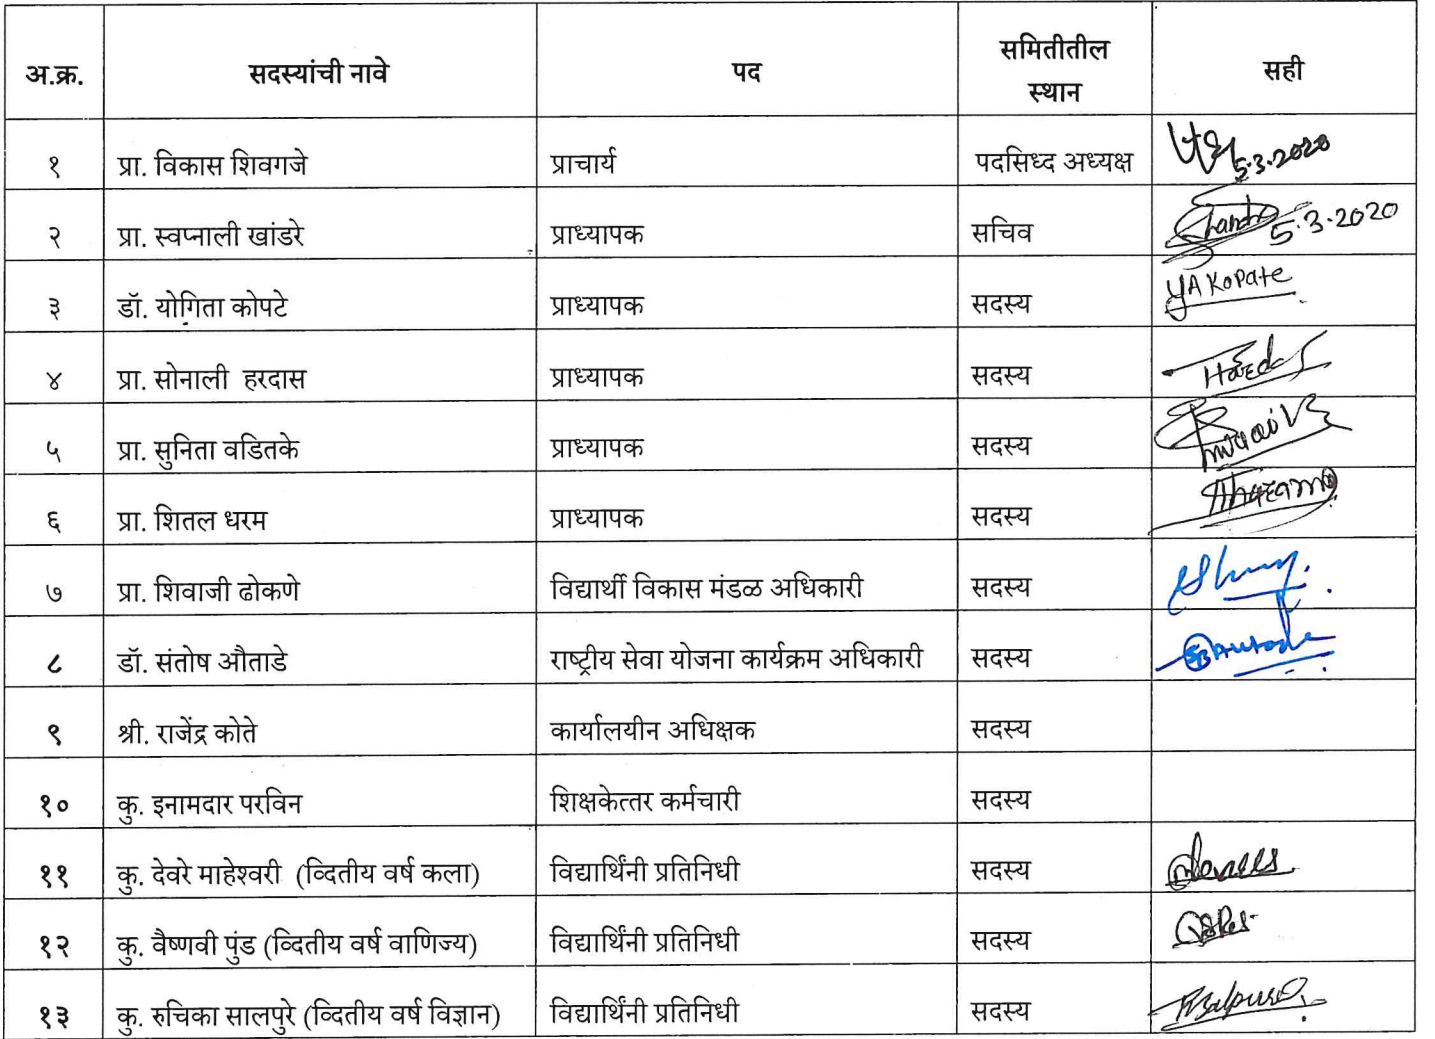 अ.क्र. सदस्यांची नावे पद समितीतील स्थान सही
१ प्रा. विकास शिवगजे प्राचार्य पदसिध्द अध्यक्ष 5.3.2020
२ प्रा. स्वप्नाली खांडरे प्राध्यापक सचिव 5.3.2020
३ डॉ. योगिता कोपटे प्राध्यापक सदस्य YAKopate
४ प्रा. सोनाली हरदास प्राध्यापक सदस्य
५ प्रा. सुनिता वडितके प्राध्यापक सदस्य
६ प्रा. शितल धरम प्राध्यापक सदस्य
७ प्रा. शिवाजी ढोकणे विद्यार्थी विकास मंडळ अधिकारी सदस्य
८ डॉ. संतोष औताडे राष्ट्रीय सेवा योजना कार्यक्रम अधिकारी सदस्य
९ श्री. राजेंद्र कोते कार्यालयीन अधिक्षक सदस्य
१० कु. इनामदार परविन शिक्षकेत्तर कर्मचारी सदस्य
११ कु. देवरे माहेश्वरी (व्दितीय वर्ष कला) विद्यार्थिंनी प्रतिनिधी सदस्य
१२ कु. वैष्णवी पुंड (व्दितीय वर्ष वाणिज्य) विद्यार्थिंनी प्रतिनिधी सदस्य
१३ कु. रुचिका सालपुरे (व्दितीय वर्ष विज्ञान) विद्यार्थिंनी प्रतिनिधी सदस्य